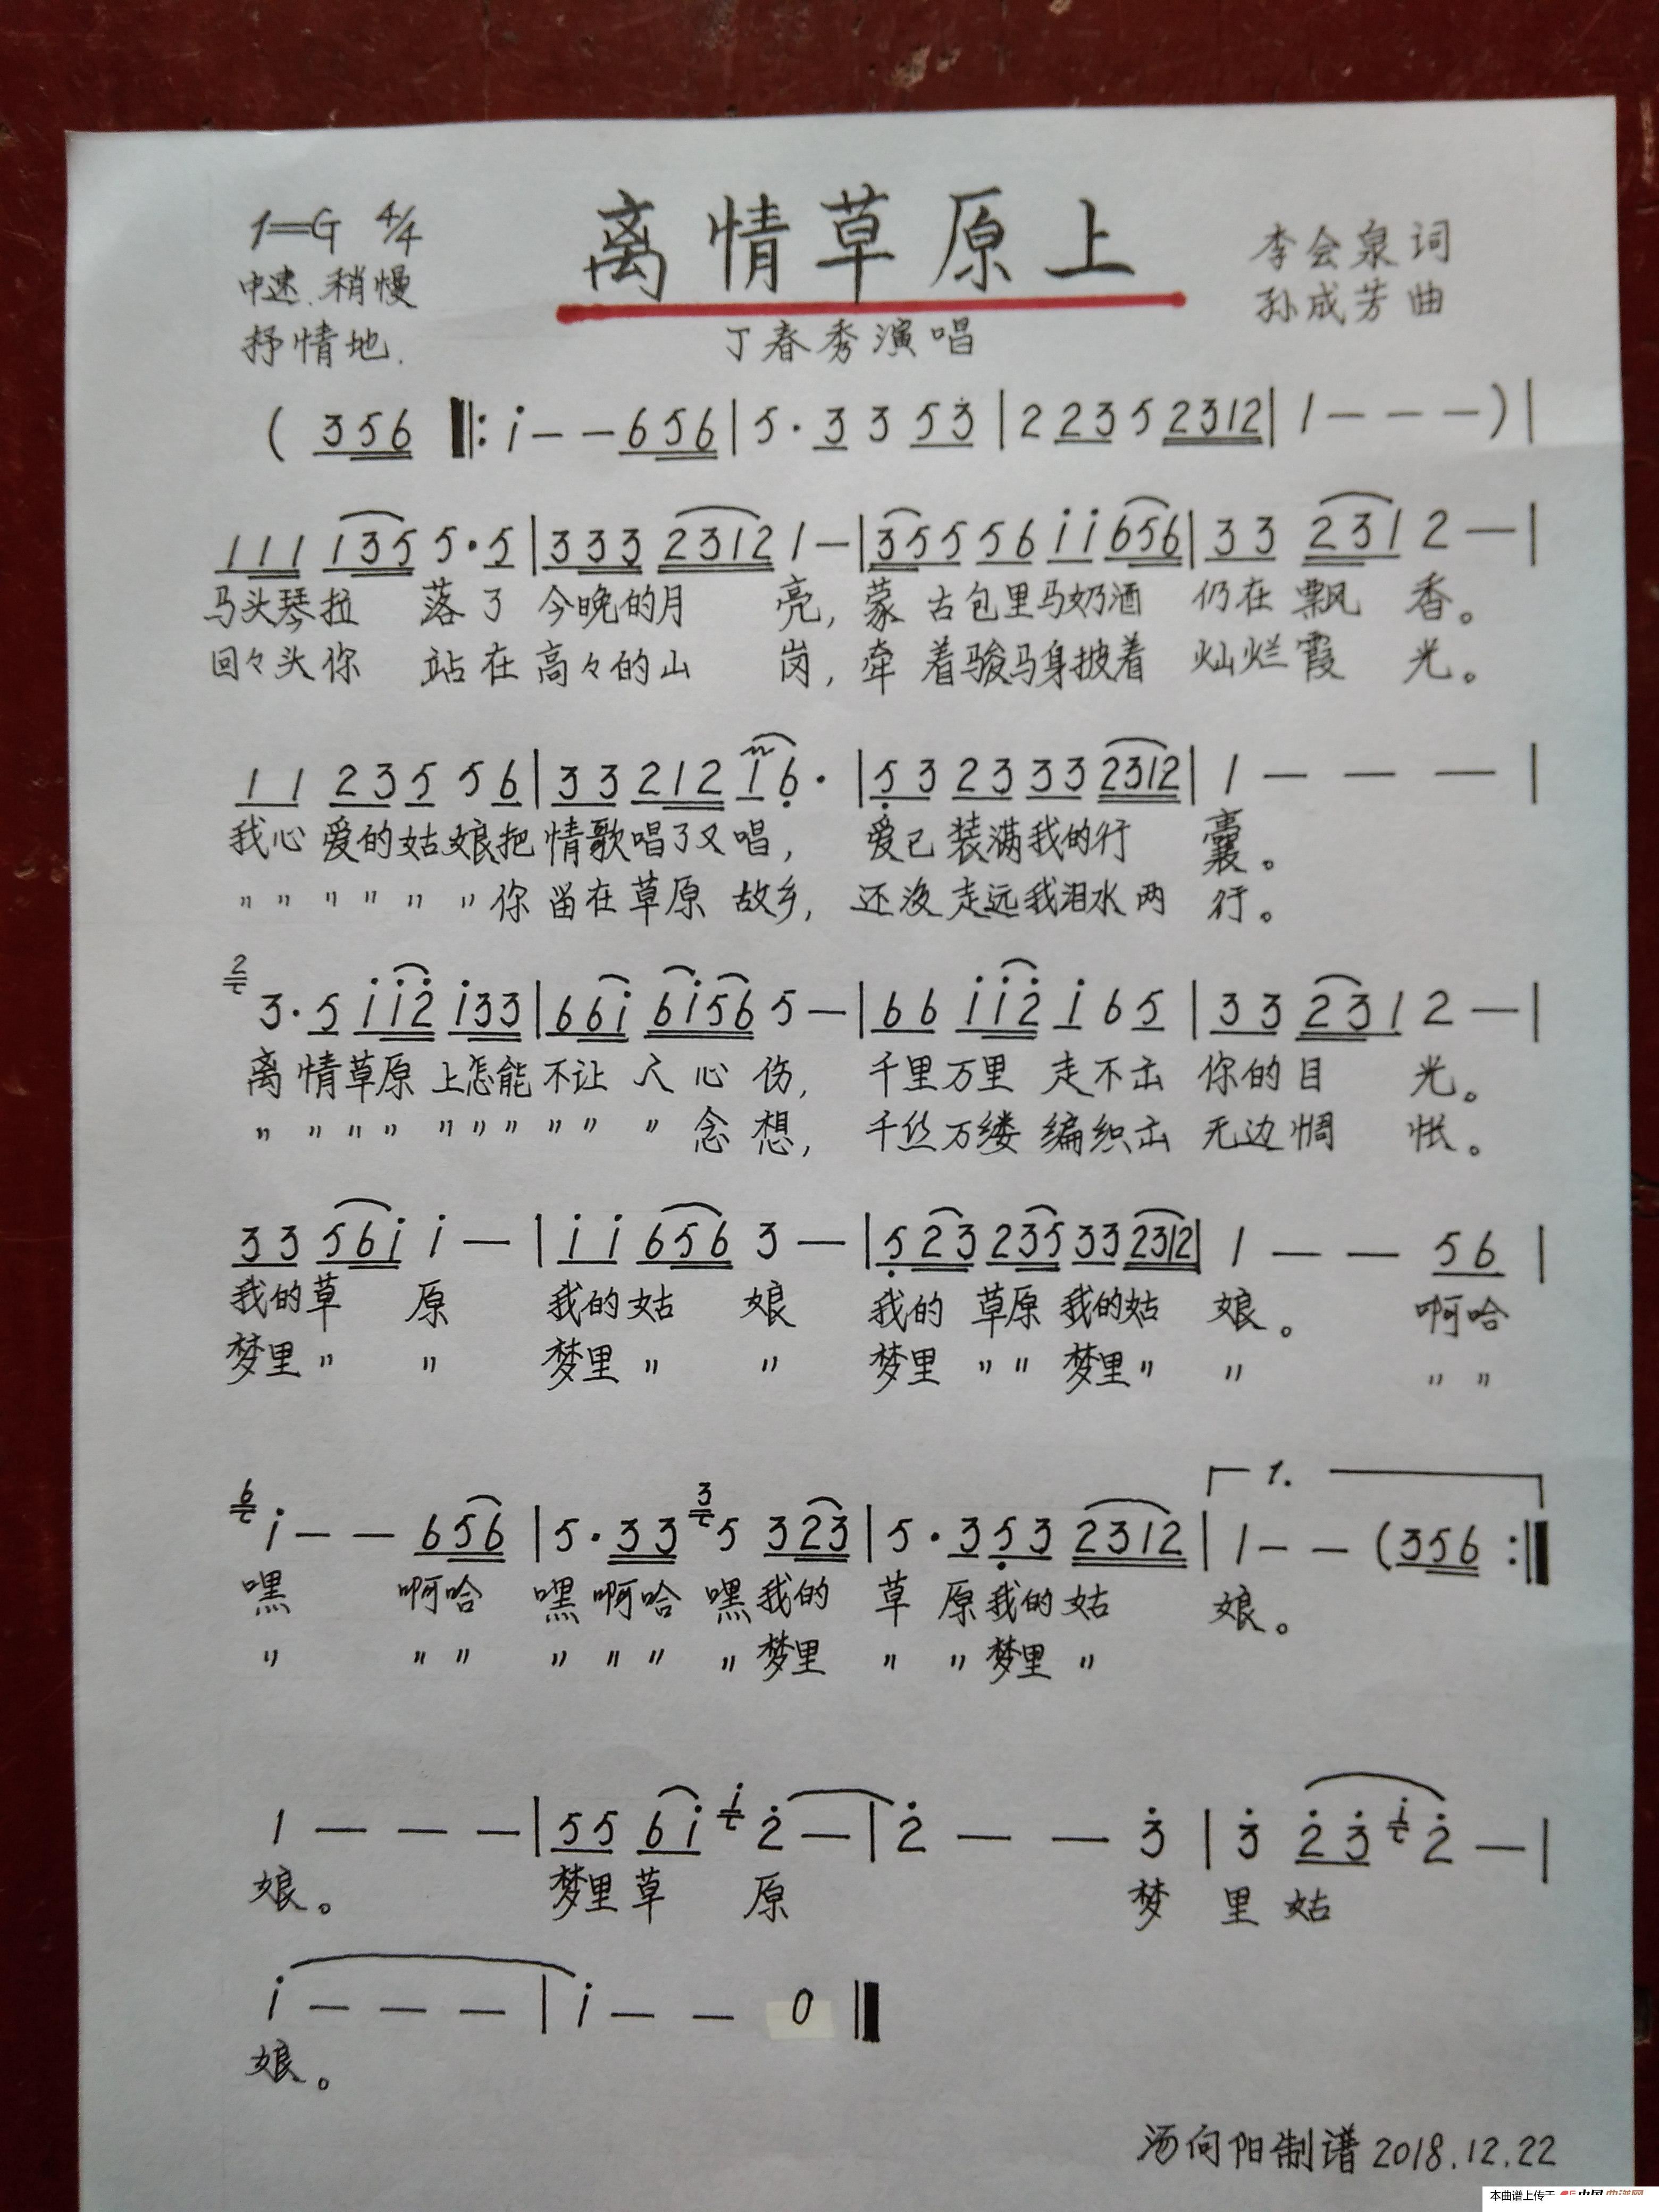 1=G 4/4 离情草原上 李会泉词
中速.稍慢 孙成芳曲
抒情地. 丁春秀演唱
( 356 ‖: i - - 656 | 5 · 3 3 53 | 2 23 5 2312 | 1 - - - ) |
111 135 5·5 | 333 2312 1 - | 355 56 ii 656 | 33 231 2 - |
马头琴拉 落了 今晚的月 亮, 蒙古包里马奶酒 仍在飘 香。
回々头你 站在高々的山 岗, 牵着骏马身披着 灿烂霞 光。
11 235 56 | 33 212 16· | 53 23 33 2312 | 1 - - - |
我心爱的姑娘把情歌唱了又唱, 爱已装满我的行 囊。
" " " " " " 你留在草原故乡, 还没走远我泪水两 行。
2 3·5 ii2 i33 | 66i 6i56 5 - | 66 ii2 i 65 | 33 231 2 - |
离情草原上怎能不让人心伤, 千里万里走不出你的目 光。
" " " " " " " " " " 念想, 千丝万缕编织出无边惆 怅。
33 56i i - | ii 656 3 - | 523 235 33 2312 | 1 - - 56 |
我的草 原 我的姑 娘 我的草原我的姑 娘。 啊哈
梦里" " 梦里" " 梦里" " 梦里" " " "
6 i - - 656 | 5·33 3 5 323 | 5·3 53 2312 | 1. 1 - - (356 :‖
嘿 啊哈 嘿啊哈嘿我的 草原我的姑 娘。
" " " " " " " 梦里 " " 梦里 "
1 - - - | 55 6i i 2 - | 2 - - 3 | 3 23 i 2 - |
娘。 梦里草 原 梦 里姑
i - - - | i - - 0 ‖
娘。
汤向阳制谱2018.12.22
本曲谱上传于